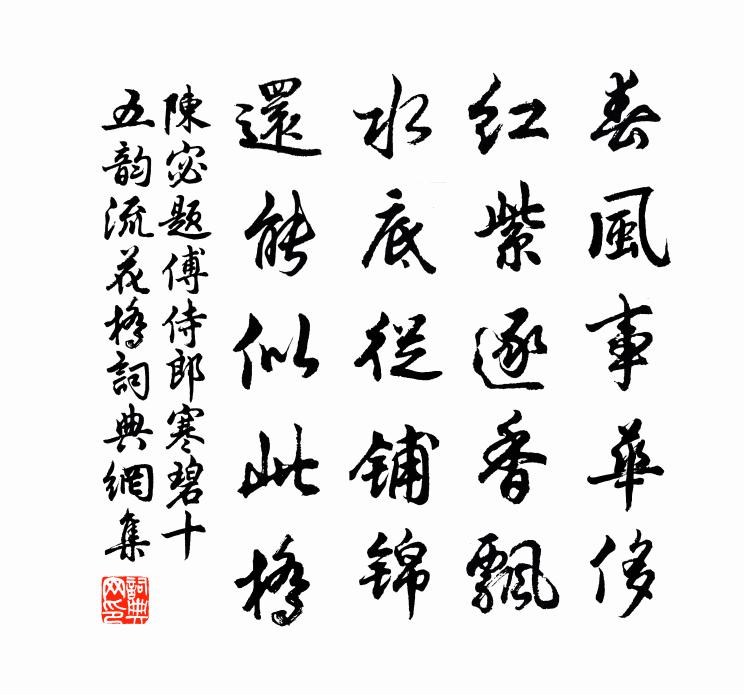 春風事華侈
紅紫逐香飄
水底從鋪錦
還能似此橋
陳宓題傅侍郎寒碧十
五韵流花橋詞典網集
詞典
网印